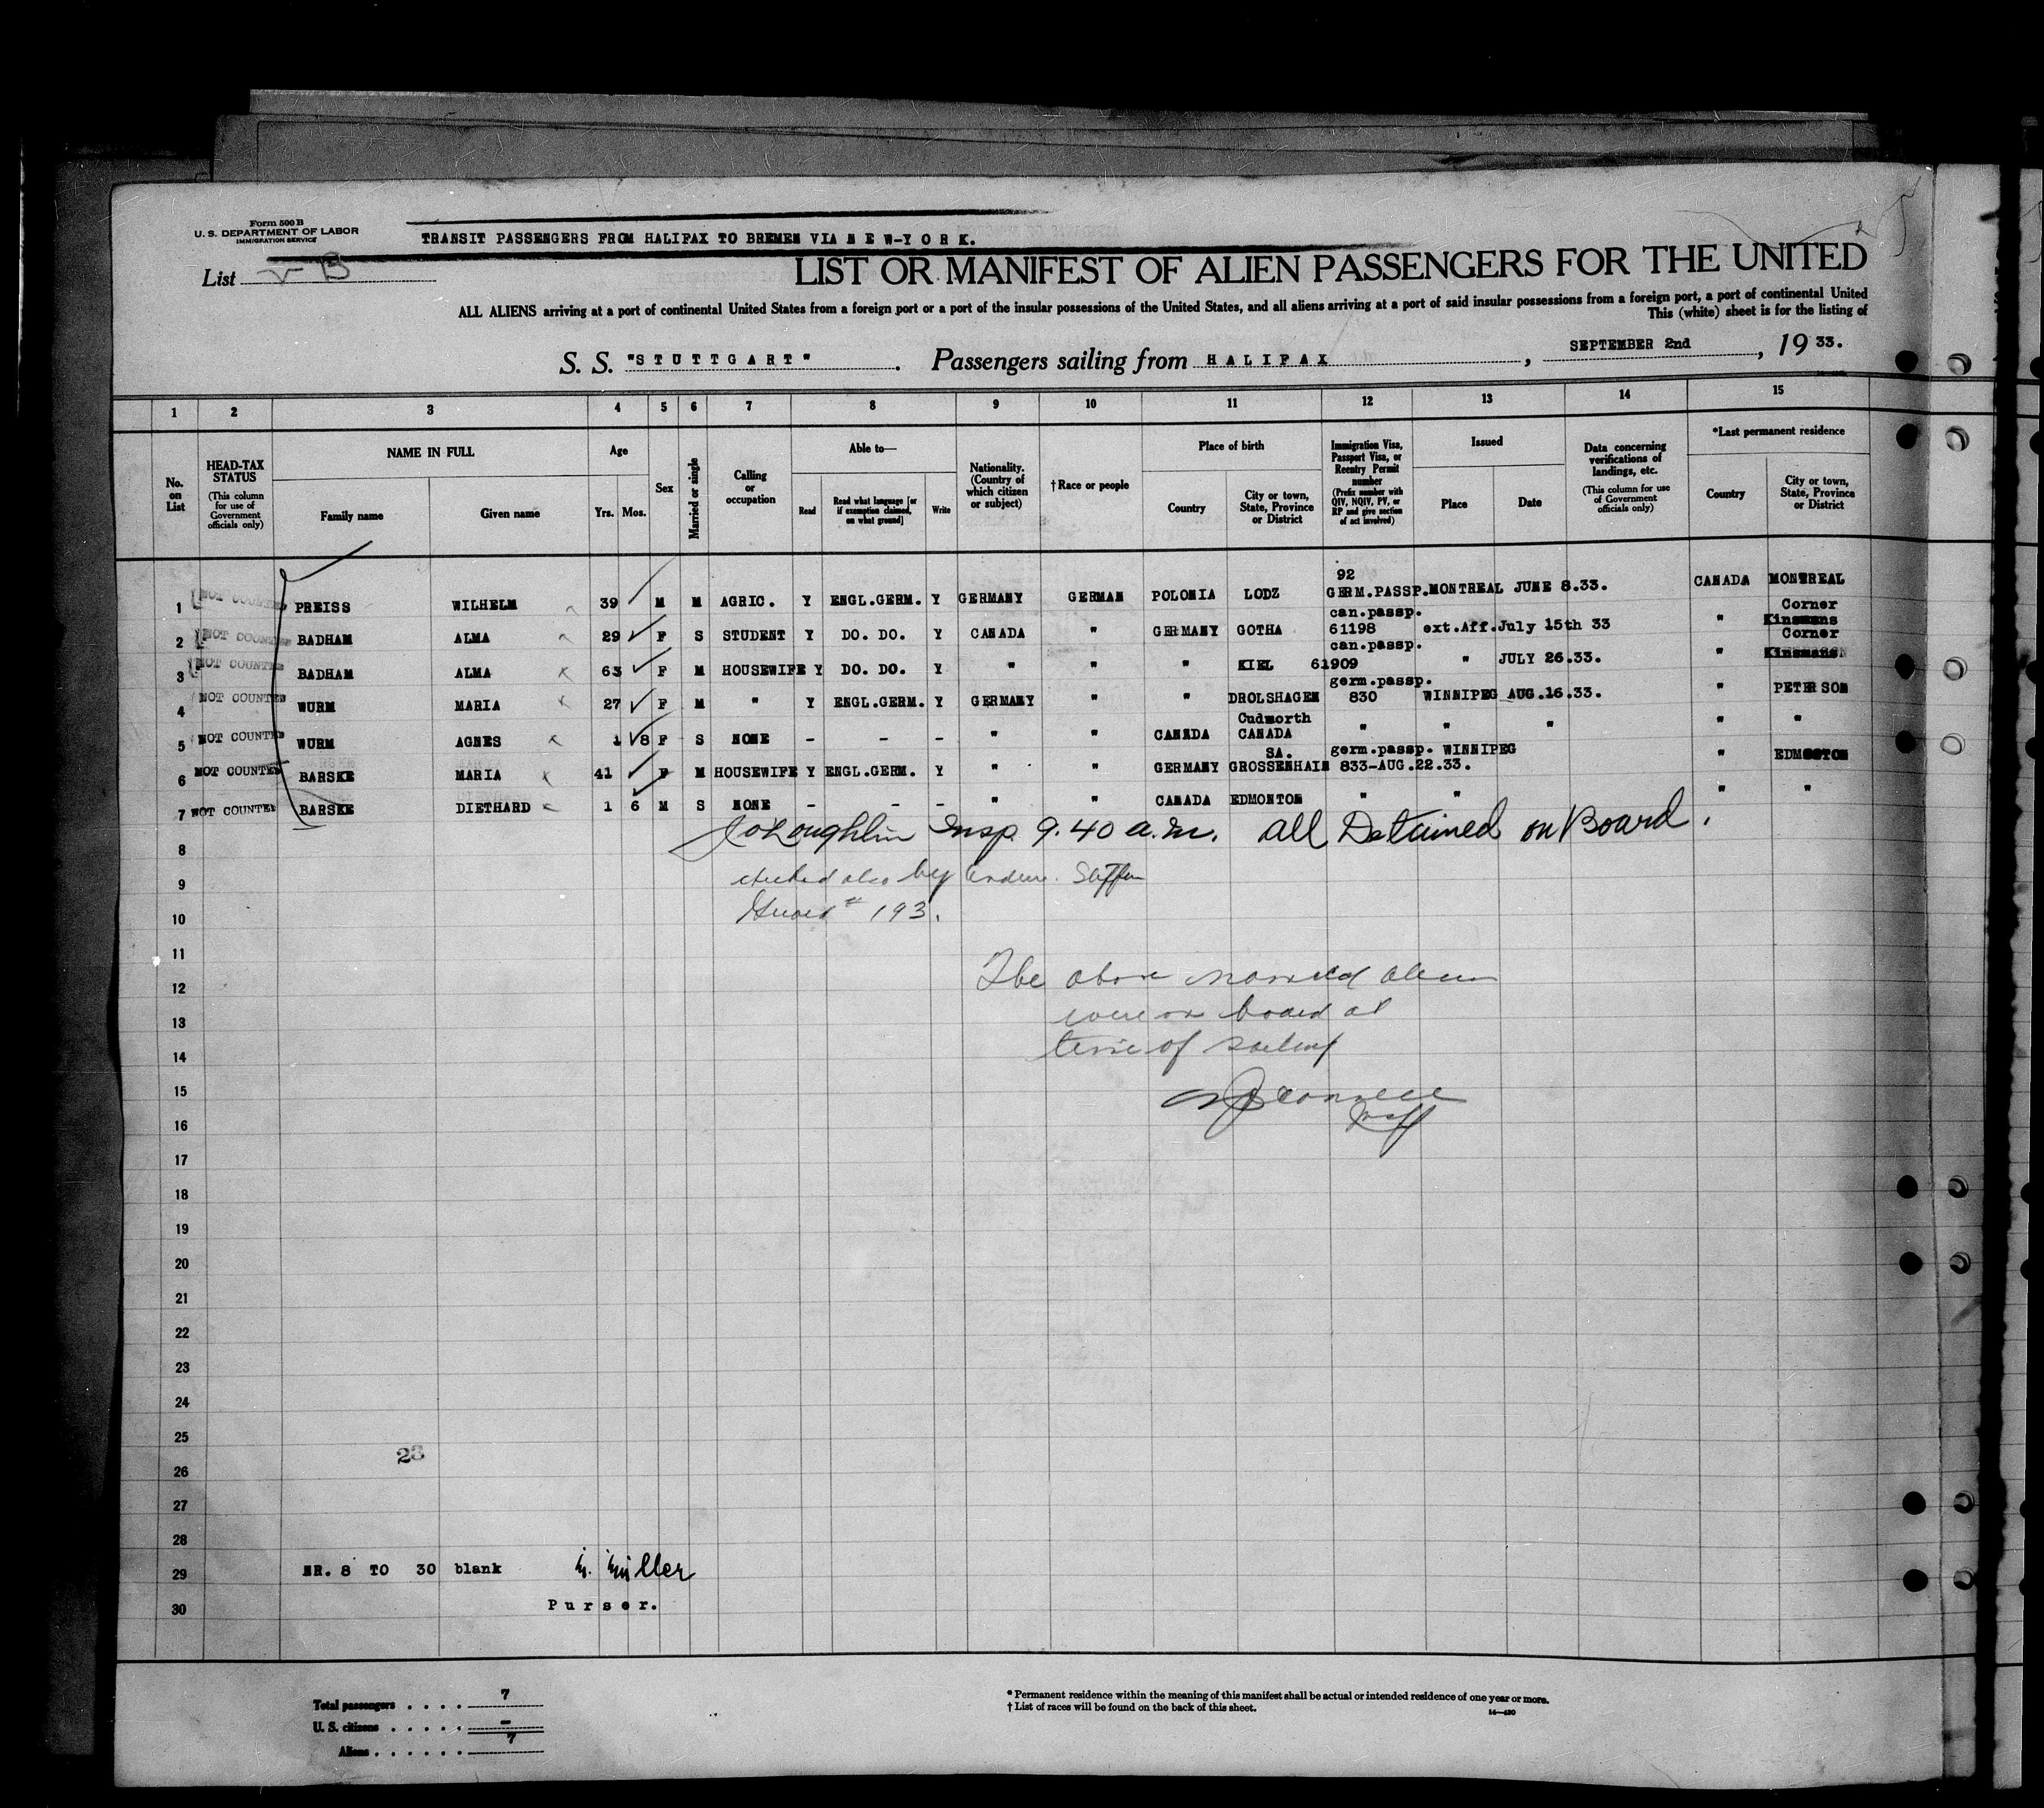 Form 500 B
U. S. DEPARTMENT OF LABOR
IMMIGRATION SERVICE
TRANSIT PASSENGERS FROM HALIFAX TO BREMEN VIA N E W-Y O R K.
List B
LIST OR MANIFEST OF ALIEN PASSENGERS FOR THE UNITED
ALL ALIENS arriving at a port of continental United States from a foreign port or a port of the insular possessions of the United States, and all aliens arriving at a port of said insular possessions from a foreign port, a port of continental United
This (white) sheet is for the listing of
S. S. "S T U T T G A R T". Passengers sailing from H A L I F A X, SEPTEMBER 2nd, 19 33.
1 2 3 4 5 6 7 8 9 10 11 12 13 14 15
No. on List
HEAD-TAX STATUS (This column for use of Government officials only)
NAME IN FULL
Family name Given name
Age
Yrs. Mos.
Sex
Married or single
Calling or occupation
Able to—
Read
Read what language [or if exemption claimed, on what ground]
Write
Nationality. (Country of which citizen or subject)
†Race or people
Place of birth
Country
City or town, State, Province or District
Immigration Visa, Passport Visa, or Reentry Permit number (Prefix number with QIV, NQIV, PV, or RP and give section of act involved)
Issued
Place Date
Data concerning verifications of landings, etc. (This column for use of Government officials only)
*Last permanent residence
Country
City or town, State, Province or District
92
1 NOT COUNTED PREISS WILHELM 39 M M AGRIC. Y ENGL.GERM. Y GERMANY GERMAN POLONIA LODZ GERM.PASSP. MONTREAL JUNE 8.33. CANADA MONTREAL
can.passp. Corner
2 NOT COUNTED BADHAM ALMA 29 F S STUDENT Y DO. DO. Y CANADA " GERMANY GOTHA 61198 ext.Aff. July 15th 33 " Kinsmans
can.passp. Corner
3 NOT COUNTED BADHAM ALMA 63 F M HOUSEWIFE Y DO. DO. Y " " " KIEL 61909 " JULY 26.33. " Kinsmans
germ.passp.
4 NOT COUNTED WURM MARIA 27 F M " Y ENGL.GERM. Y GERMANY " " DROLSHAGEN 830 WINNIPEG AUG.16.33. " PETERSON
Cudworth
5 NOT COUNTED WURM AGNES 1 8 F S NONE - - - " " CANADA CANADA " " " " "
SA. germ.passp. WINNIPEG
6 NOT COUNTED BARSKE MARIA 41 F M HOUSEWIFE Y ENGL.GERM. Y " " GERMANY GROSSENHAIN 833-AUG.22.33. " EDMONTON
7 NOT COUNTED BARSKE DIETHARD 1 6 M S NONE - - - " " CANADA EDMONTON " " " "
J O'Loughlin Insp 9.40 a.m. all Detained on Board.
8
checked also by
9
Guard # 193.
10
11
The above named aliens
12
were on board at
13
time of sailing
14
15
Insp
16
17
18
19
20
21
22
23
24
25
23
26
27
28
29 NR. 8 TO 30 blank Miller
30 P u r s e r.
Total passengers . . . . 7
U. S. citizens . . . . . -
Aliens . . . . . . 7
* Permanent residence within the meaning of this manifest shall be actual or intended residence of one year or more.
† List of races will be found on the back of this sheet.
14—430